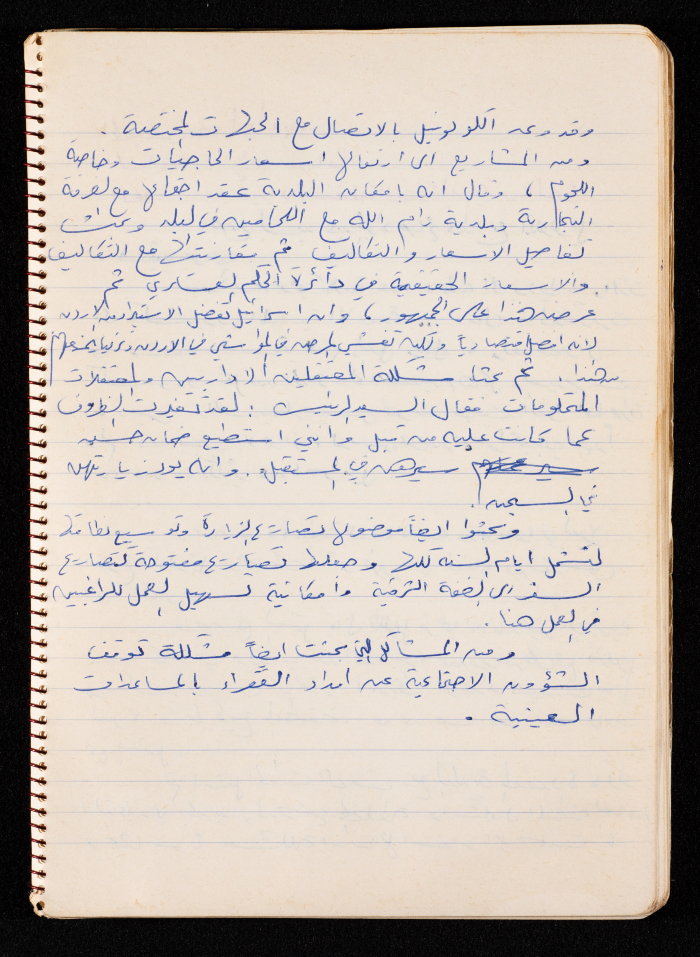 وقد وعد الكولونيل بالاتصال مع الجهات المختصة .
ومن المشاريع الى ارتفاع اسعار الحاجيات وخاصة
اللحوم ، وقال انه بامكان البلدية عقد اجتماع مع الغرفة
التجارية وبلدية رام الله مع اللحامين في البلد وبحث
تفاصيل الاسعار والتكاليف ثم مقارنتها مع التكاليف
والاسعار الحقيقية في دائرة الحكم العسكري ثم
عرض هذا على الجمهور ، وان اسرائيل تفضل الاستيراد من الاردن
لانه افضل اقتصادياً ولكن تفشي المرض في المواشي في الاردن
من هذا . ثم بحثنا مشكلة المعتقلين الاداريين والمعتقلات
فقال السيد الرئيس : لقد تغيرت الظروف
عما كانت عليه من قبل وانني استطيع ضمان حسن
سيرهن في المستقبل . وانه يود زيارتهن
في السجن .
وبحثوا ايضاً موضوع تصاريح الزيارة وتوسيع نطاقها
لتشمل ايام السنة كلها وجعلها تصاريح مفتوحة كتصاريح
السفر الى الضفة الشرقية وامكانية تسهيل العمل للراغبين
في العمل هنا .
ومن المشاكل التي بحثت ايضاً مشكلة توقف
الشؤون الاجتماعية عن امداد الفقراء بالمساعدات
العينية .